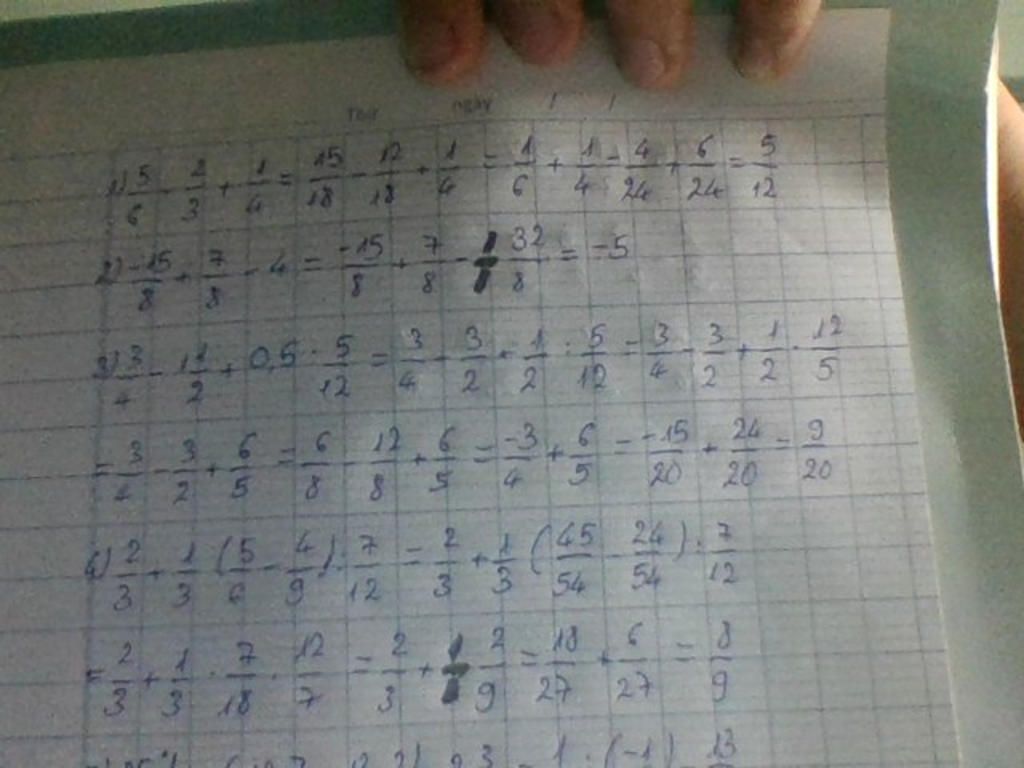 Thứ ngày / /
1) 5/6 - 2/3 + 1/4 = 15/18 - 12/18 + 1/4 = 1/6 + 1/4 = 4/24 + 6/24 = 5/12
2) -15/8 + 7/8 - 4 = -15/8 + 7/8 - 32/8 = -5
3) 3/4 - 1 1/2 + 0,5 : 5/12 = 3/4 - 3/2 + 1/2 : 5/12 = 3/4 - 3/2 + 1/2 . 12/5
= 3/4 - 3/2 + 6/5 = 6/8 - 12/8 + 6/5 = -3/4 + 6/5 = -15/20 + 24/20 = 9/20
4) 2/3 + 1/3 (5/6 - 4/9) : 7/12 = 2/3 + 1/3 (45/54 - 24/54) : 7/12
= 2/3 + 1/3 . 7/18 . 12/7 = 2/3 + 2/9 = 18/27 + 6/27 = 8/9